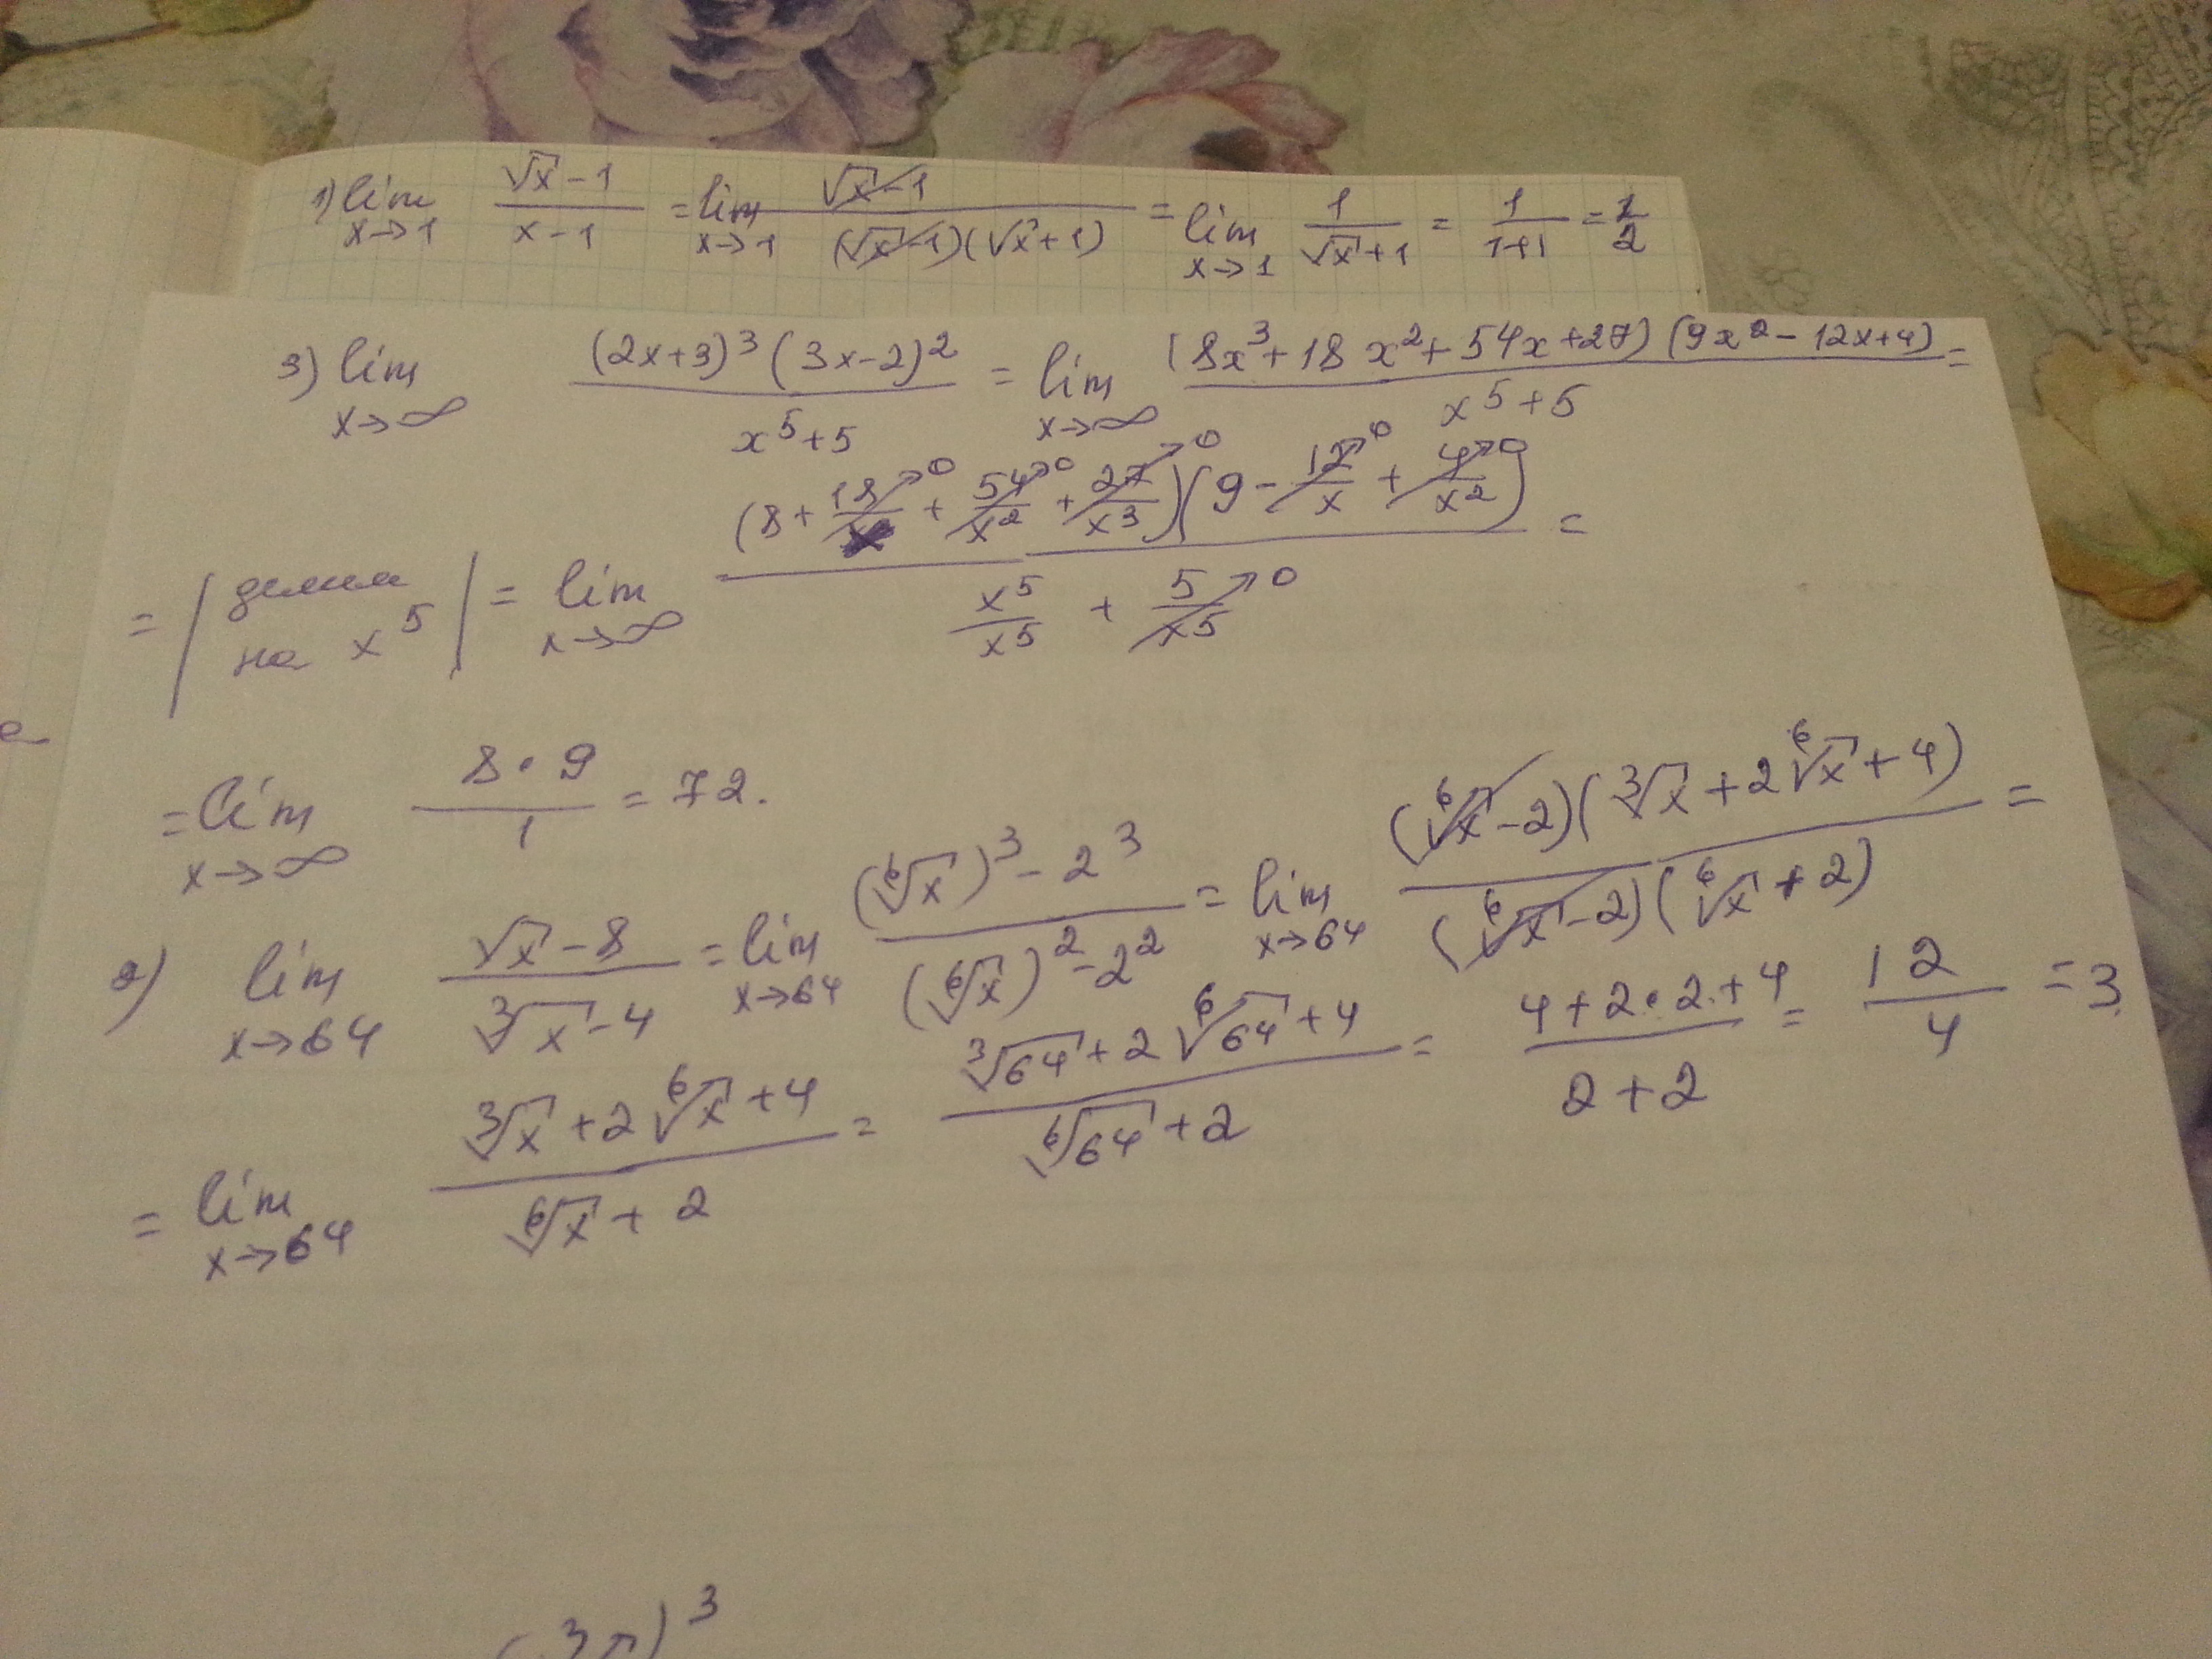 1) lim x→1 (√x - 1)/(x - 1) = lim x→1 (√x - 1)/((√x - 1)(√x + 1)) = lim x→1 1/(√x + 1) = 1/(1+1) = 1/2
3) lim x→∞ ((2x+3)³(3x-2)²)/(x⁵+5) = lim x→∞ ((8x³+18x²+54x+27)(9x²-12x+4))/(x⁵+5) =
= | делим на x⁵ | = lim x→∞ ((8 + 18/x→0 + 54/x²→0 + 27/x³→0)(9 - 12/x→0 + 4/x²→0))/(x⁵/x⁵ + 5/x⁵→0) =
= lim x→∞ (8·9)/1 = 72.
2) lim x→64 (√x - 8)/(∛x - 4) = lim x→64 ((⁶√x)³ - 2³)/((⁶√x)² - 2²) = lim x→64 ((⁶√x - 2)(∛x + 2⁶√x + 4))/((⁶√x - 2)(⁶√x + 2)) =
= lim x→64 (∛x + 2⁶√x + 4)/(⁶√x + 2) = (∛64 + 2⁶√64 + 4)/(⁶√64 + 2) = (4+2·2+4)/(2+2) = 12/4 = 3